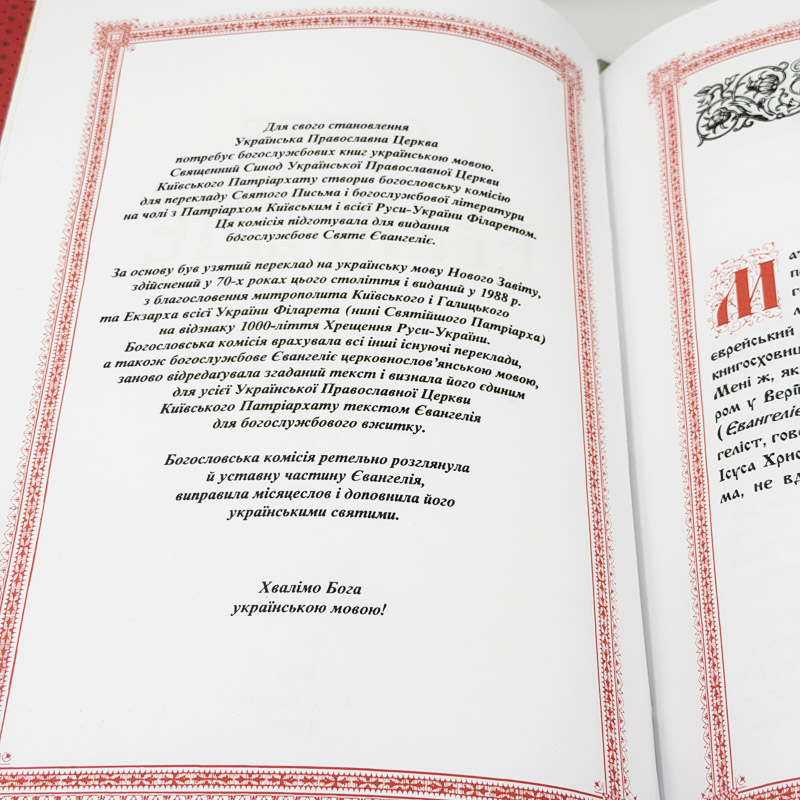 Для свого становлення
Українська Православна Церква
потребує богослужбових книг українською мовою.
Священний Синод Української Православної Церкви
Київського Патріархату створив богословську комісію
для перекладу Святого Письма і богослужбової літератури
на чолі з Патріархом Київським і всієї Руси-України Філаретом.
Ця комісія підготувала для видання
богослужбове Святе Євангеліє.
За основу був узятий переклад на українську мову Нового Завіту,
здійснений у 70-х роках цього століття і виданий у 1988 р.
з благословення митрополита Київського і Галицького
та Екзарха всієї України Філарета (нині Святійшого Патріарха)
на відзнаку 1000-ліття Хрещення Руси-України.
Богословська комісія врахувала всі інші існуючі переклади,
а також богослужбове Євангеліє церковнослов’янською мовою,
заново відредагувала згаданий текст і визнала його єдиним
для усієї Української Православної Церкви
Київського Патріархату текстом Євангелія
для богослужбового вжитку.
Богословська комісія ретельно розглянула
й уставну частину Євангелія,
виправила місяцеслов і доповнила його
українськими святими.
Хвалімо Бога
українською мовою!
М
єврейський
Мені ж, як
ром у Верії
(Євангеліє
геліст, гов
Ісуса Хрис
ма, не вд